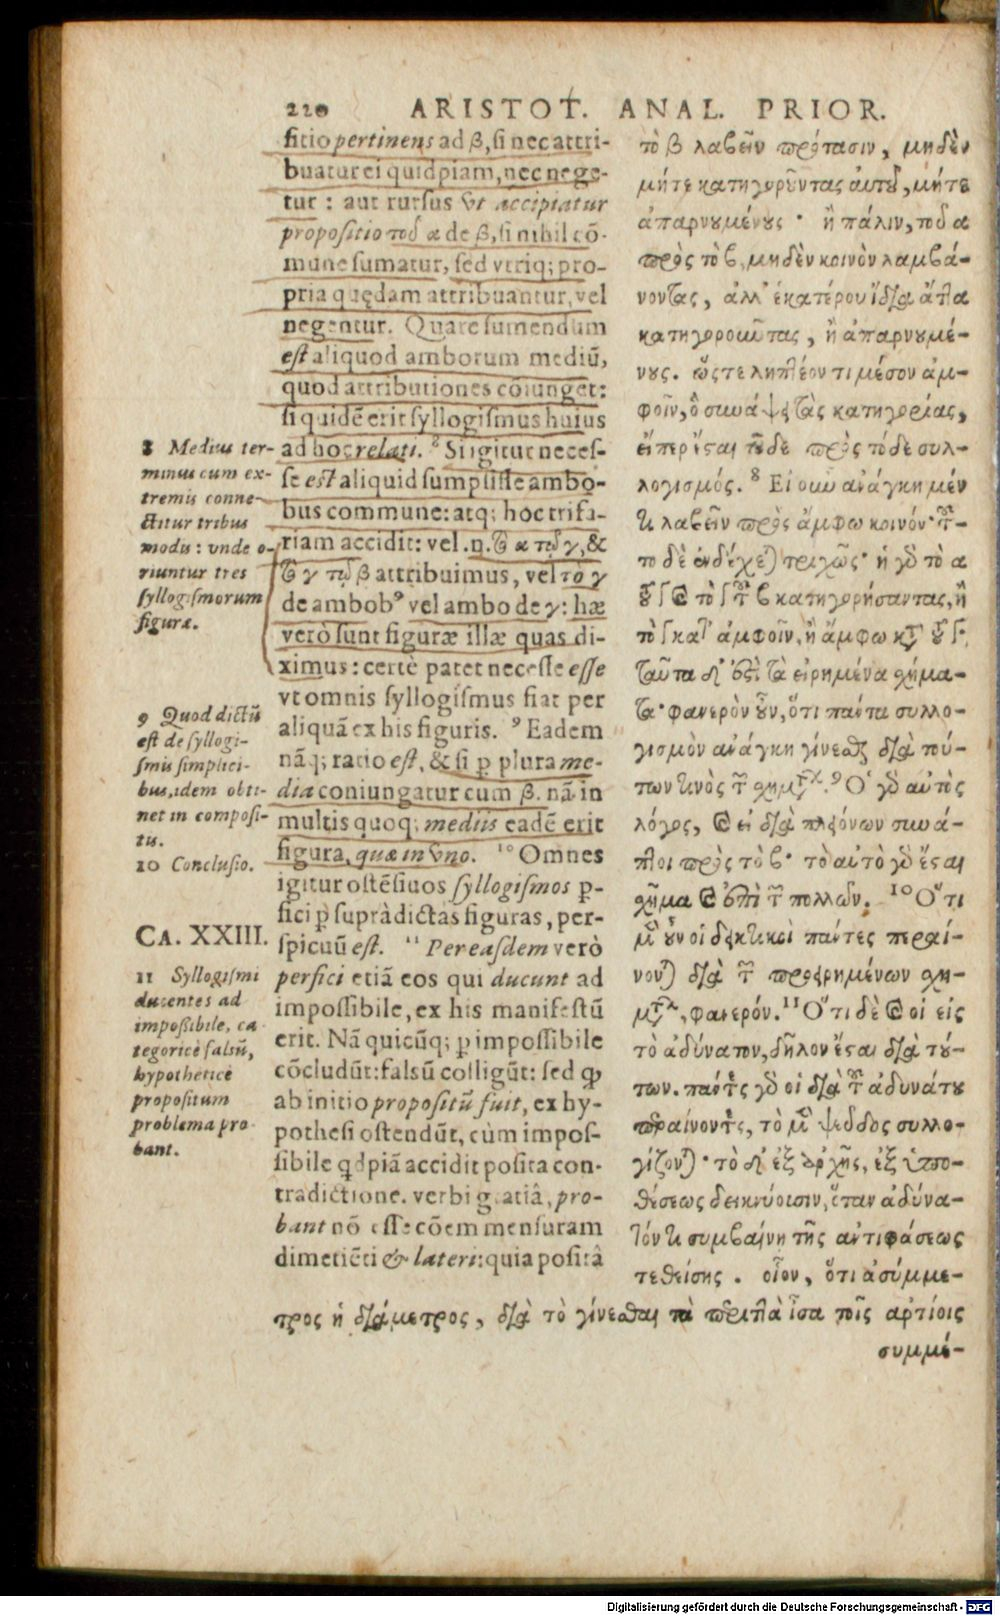 220 ARISTOT. ANAL. PRIOR.
sitio pertinens ad β, si nec attri-
buatur ei quidpiam, nec nege-
tur : aut rursus vt accipiatur
propositio τοῦ α de β, si nihil cõ-
mune sumatur, sed vtriq; pro-
pria quędam attribuantur, vel
negentur. Quare sumendum
est aliquod amborum mediũ,
quod attributiones cõiunget:
si quidẽ erit syllogismus huius
ad hoc relati. 8 Si igitur neces-
se est aliquid sumpsisse ambo-
bus commune: atq; hoc trifa-
riam accidit: vel .n. τὸ α τῷ γ, &
τὸ γ τῷ β attribuimus, vel τὸ γ
de ambob⁹ vel ambo de γ: hæ
verò sunt figuræ illæ quas di-
ximus: certè patet necesse esse
vt omnis syllogismus fiat per
aliquã ex his figuris. 9 Eadem
nãq; ratio est, & si ꝑ plura me-
dia coniungatur cum β. nã in
multis quoq; mediis eadẽ erit
figura, quæ in vno. 10 Omnes
igitur ostẽsiuos syllogismos ꝑ-
fici ꝑ suprà dictas figuras, per-
spicuũ est. 11 Per easdem verò
perfici etiã eos qui ducunt ad
impossibile, ex his manifestũ
erit. Nã quicũq; ꝑ impossibile
cõcludũt: falsũ colligũt: sed ꝙ
ab initio propositũ fuit, ex hy-
pothesi ostendũt, cùm impos-
sibile qdpiã accidit posita con-
tradictione. verbi gratiâ, pro-
bant nõ esse cõem mensuram
dimetiẽti & lateri: quia positâ
8 Medius ter-
minus cum ex-
tremis conne-
ctitur tribus
modis : vnde o-
riuntur tres
syllogismorum
figuræ.
9 Quod dictũ
est de syllogi-
smis simplici-
bus, idem obti-
net in composi-
tis.
10 Conclusio.
CA. XXIII.
11 Syllogismi
ducentes ad
impossibile, ca
tegoricè falsũ,
hypotheticè
propositum
problema pro-
bant.
τὸ β λαβεῖν πρότασιν, μηδὲν
μήτε κατηγοροῦντας αὐτοῦ, μήτε
ἀπαρνουμένους · ἢ πάλιν, τοῦ α
πρὸς τὸ β, μηδὲν κοινὸν λαμβά-
νοντας, ἀλλ' ἑκατέρου ἴδια ἄττα
κατηγοροῦντας, ἢ ἀπαρνουμέ-
νους. ὥςτε ληπτέον τι μέσον ἀμ-
φοῖν, ὃ συνάψει τὰς κατηγορίας,
εἴπερ ἔσται τοῦδε πρὸς τόδε συλ-
λογισμός. 8 Εἰ οὖν ἀνάγκη μέν
τι λαβεῖν πρὸς ἄμφω κοινόν· τοῦ-
το δὲ ἐνδέχεται τριχῶς· ἢ γὸ τὸ α
τοῦ γ καὶ τὸ γ τοῦ β κατηγορήσαντας, ἢ
τὸ γ κατ' ἀμφοῖν, ἢ ἄμφω κατὰ τοῦ γ·
ταῦτα δ' ἐστὶ τὰ εἰρημένα σχήμα-
τα· φανερὸν οὖν, ὅτι πάντα συλλο-
γισμὸν ἀνάγκη γίνεσθαι διὰ τού-
των τινὸς τῶν σχημάτων. 9 Ὁ γὸ αὐτὸς
λόγος, καὶ εἰ διὰ πλειόνων συνά-
πτοι πρὸς τὸ β· τὸ αὐτὸ γὸ ἔσται
σχῆμα καὶ ἐπὶ τῶν πολλῶν. 10 Ὅτι
μὲν οὖν οἱ δεικτικοὶ πάντες περαί-
νονται διὰ τῶν προειρημένων σχη-
μάτων, φανερόν. 11 Ὅτι δὲ καὶ οἱ εἰς
τὸ ἀδύνατον, δῆλον ἔσται διὰ τού-
των. πάντες γὸ οἱ διὰ τοῦ ἀδυνάτου
περαίνοντες, τὸ μὲν ψεῦδος συλλο-
γίζονται · τὸ δ' ἐξ ἀρχῆς, ἐξ ὑπο-
θέσεως δεικνύουσιν, ὅταν ἀδύνα-
τόν τι συμβαίνῃ τῆς ἀντιφάσεως
τεθείσης . οἷον, ὅτι ἀσύμμε-
τρος ἡ διάμετρος, διὰ τὸ γίνεσθαι τὰ περιττὰ ἴσα τοῖς ἀρτίοις
συμμέ-
Digitalisierung gefördert durch die Deutsche Forschungsgemeinschaft - DFG